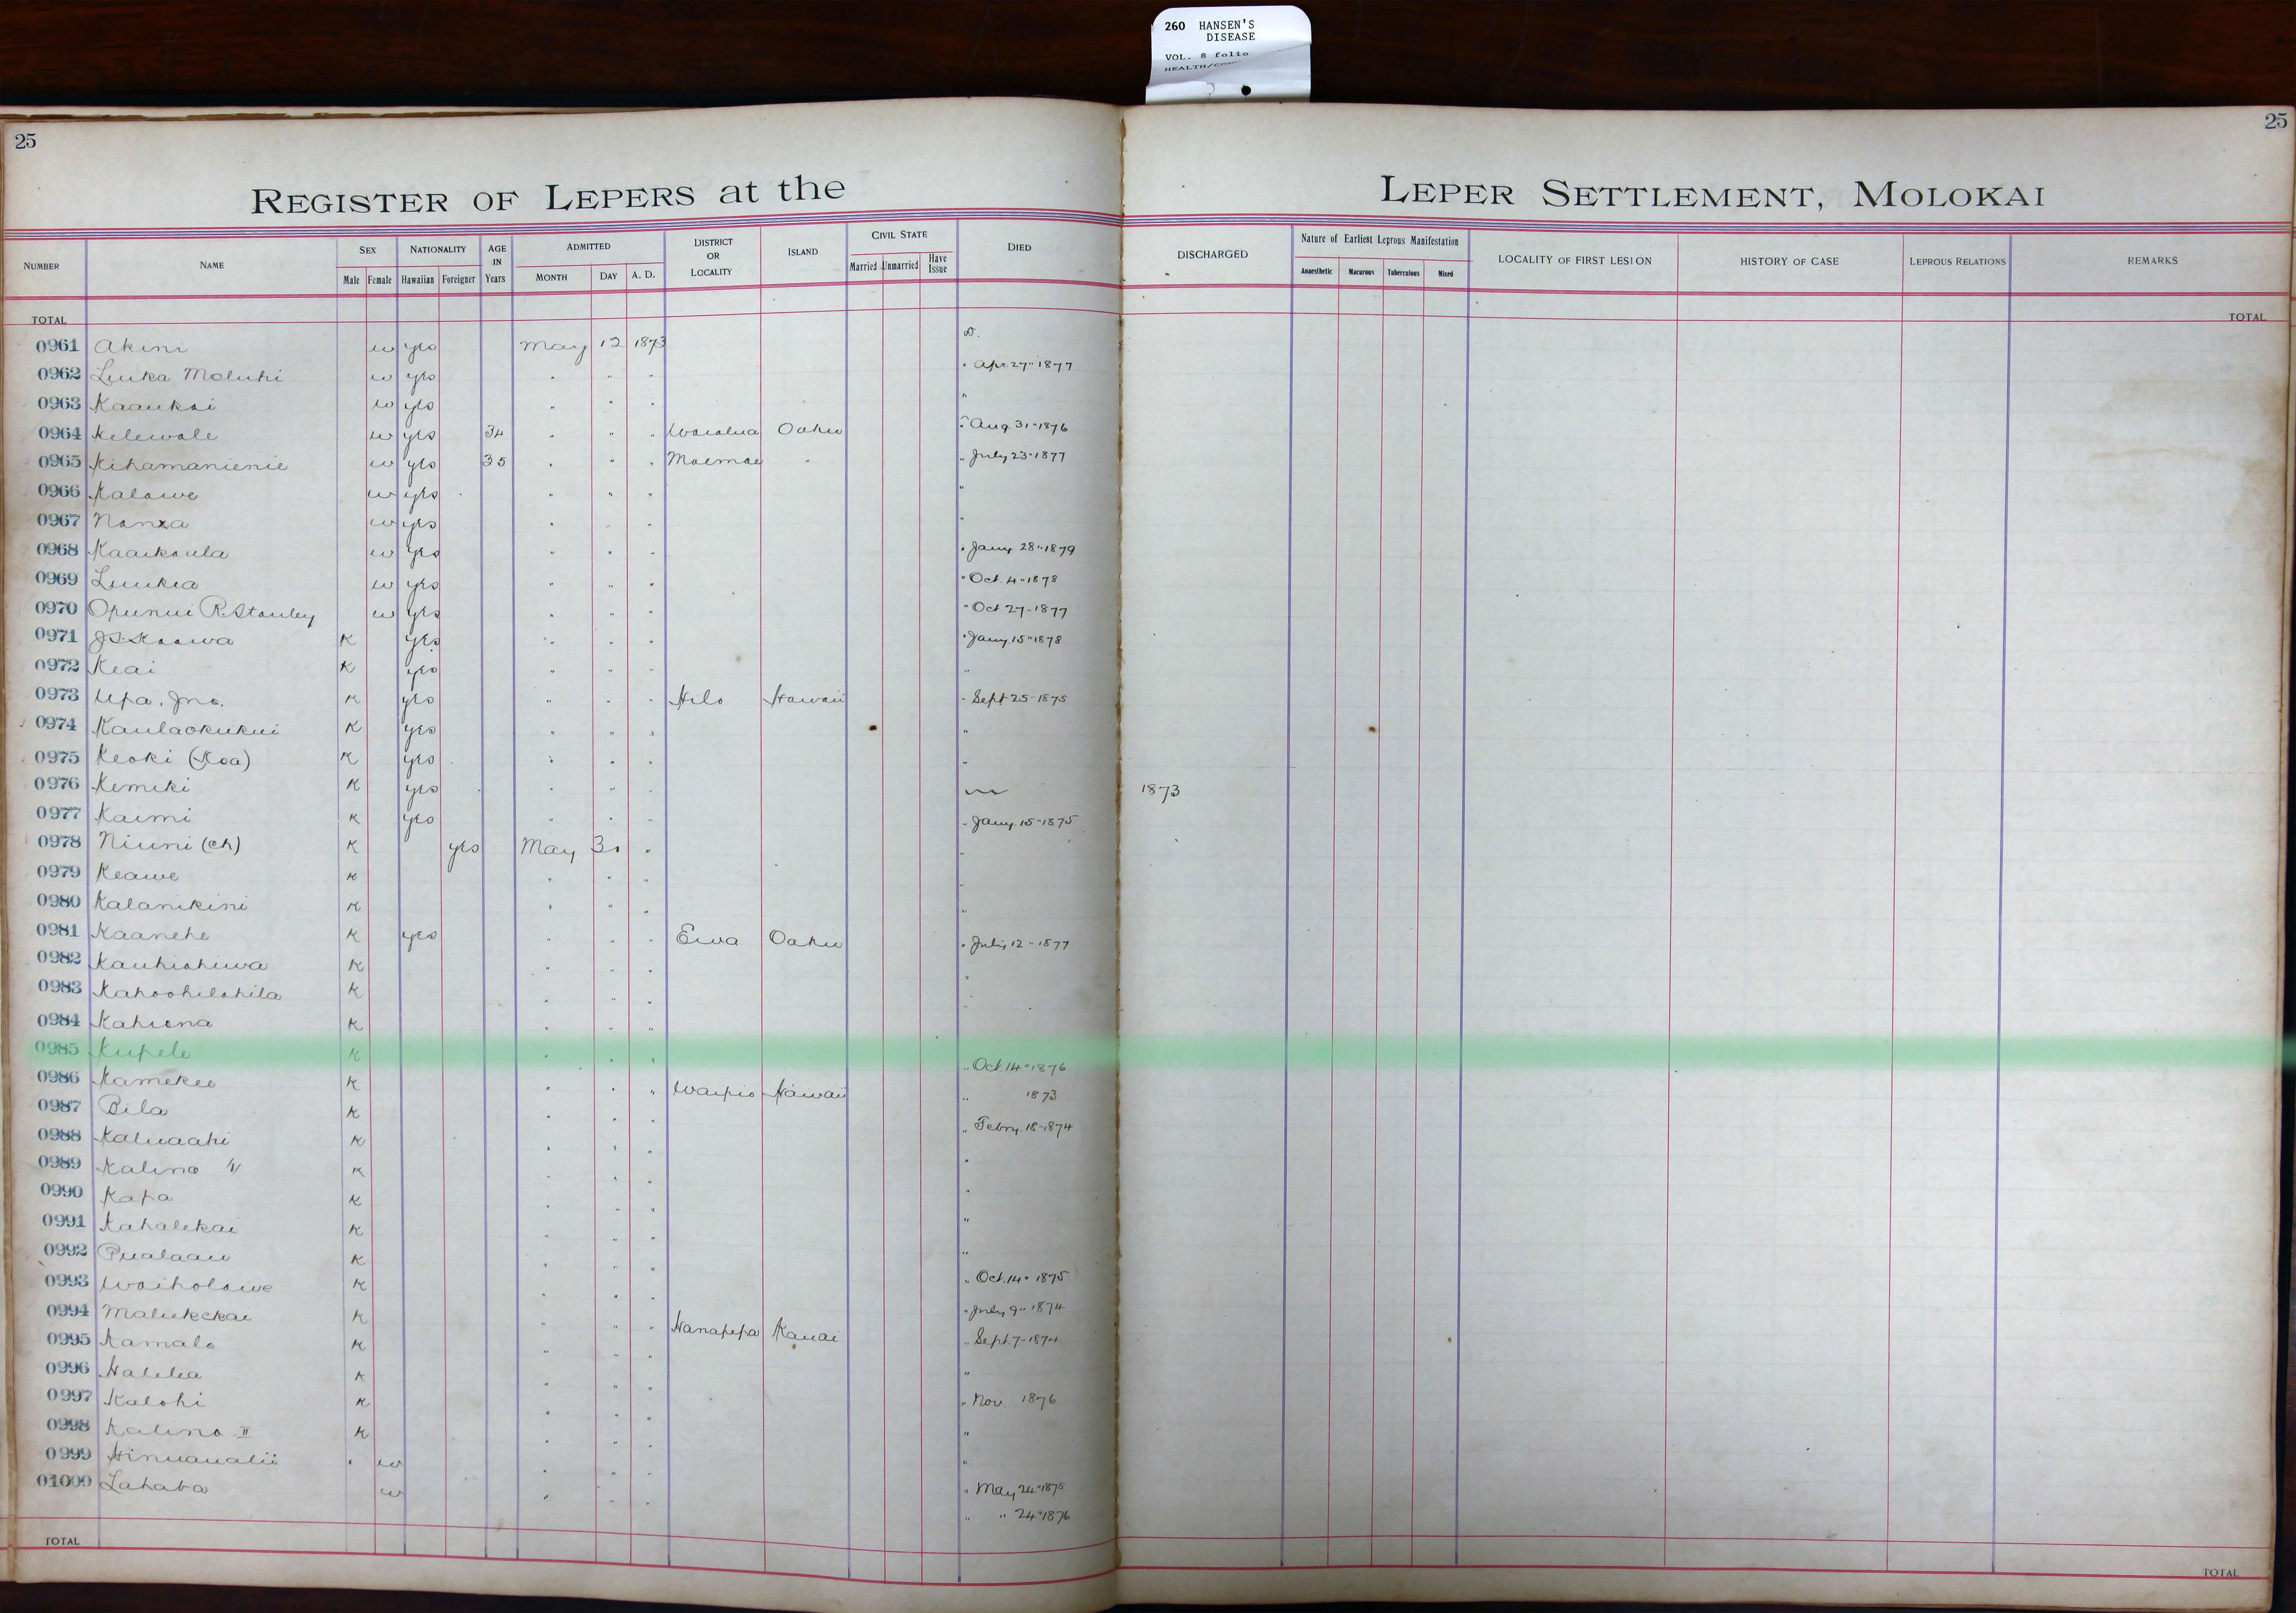 260 HANSEN'S
DISEASE
VOL. 8 folio
25
25
REGISTER OF LEPERS at the LEPER SETTLEMENT, MOLOKAI
NUMBER NAME SEX Male Female NATIONALITY Hawaiian Foreigner AGE IN Years ADMITTED MONTH DAY A. D. DISTRICT OR LOCALITY ISLAND CIVIL STATE Married Unmarried Have Issue DIED DISCHARGED Nature of Earliest Leprous Manifestation Anaesthetic Macurous Tuberculous Mixed LOCALITY OF FIRST LESION HISTORY OF CASE LEPROUS RELATIONS REMARKS
TOTAL TOTAL
0961 Akini w yes May 12 1873 D.
0962 Luika Moluhi w yes " " " " Apr. 27" 1877
0963 Kaaukai w yes " " " "
0964 Kelewale w yes 34 " " " Waialua Oahu " Aug. 31" 1876
0965 Kihamanienie w yes 35 " " " Moemoe " " July 23" 1877
0966 Kalawe w yes " " " "
0967 w yes " " " "
0968 Kaaikaula w yes " " " " Jany. 28" 1879
0969 Luukia w yes " " " " Oct. 4" 1878
0970 Opunui R. Stanley w yes " " " " Oct 27" 1877
0971 J.S. Kaawa K yes " " " " Jany. 15" 1878
0972 Keai K yes " " " "
0973 Upa, Jno. K yes " " " Hilo Hawaii " Sept 25" 1875
0974 Kaulaokukui K yes " " " "
0975 Keoki (Koa) K yes " " " "
0976 Kemiki K yes " " " 1873
0977 Kaimi K yes " " " " Jany. 15" 1875
0978 Niuni (Ch) K yes May 30 " "
0979 Keawe K " " " "
0980 Kalanikini K " " " "
0981 Kaanehe K yes " " " Ewa Oahu " July 12" 1877
0982 Kauhiahiwa K " " " "
0983 Kahoohilahila K " " " "
0984 Kahiona K " " "
0985 Kupele K " " " " Oct. 14" 1876
0986 Kamekeo K " " " Waipio Hawaii " 1873
0987 Bila K " " " " Febry. 18" 1874
0988 Kaluaahi K " " " "
0989 Kalino K " " " "
0990 Kapa K " " " "
0991 Kahalekai K " " " "
0992 Pualaau K " " " " Oct. 14" 1875
0993 Waiholowe K " " " " July 9" 1874
0994 Maliekekai K " " " Hanapepa Kauai " Sept. 7" 1874
0995 Kamalo K " " " "
0996 Halelea K " " " " Nov. 1876
0997 Kalohi K " " " "
0998 Kalino II K " " " "
0999 Hinuaualii w " " " " May 24" 1875
01000 Lahaba w " " " " " 24" 1876
TOTAL TOTAL